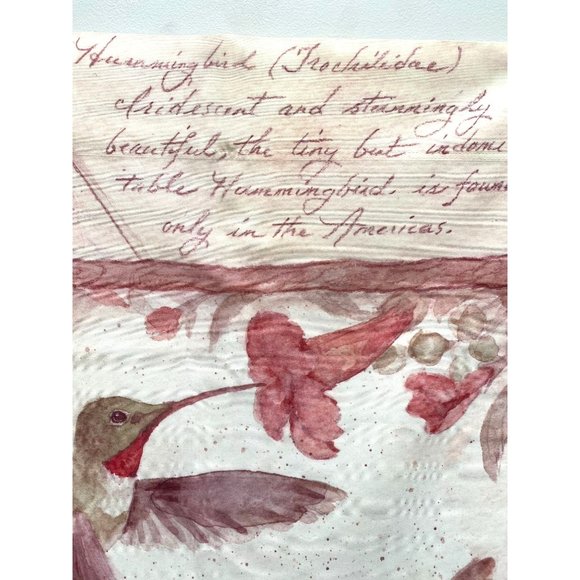 Hummingbird (Trochilidae)
Iridescent and stunningly
beautiful, the tiny but indomi
table Hummingbird. is foun
only in the Americas.